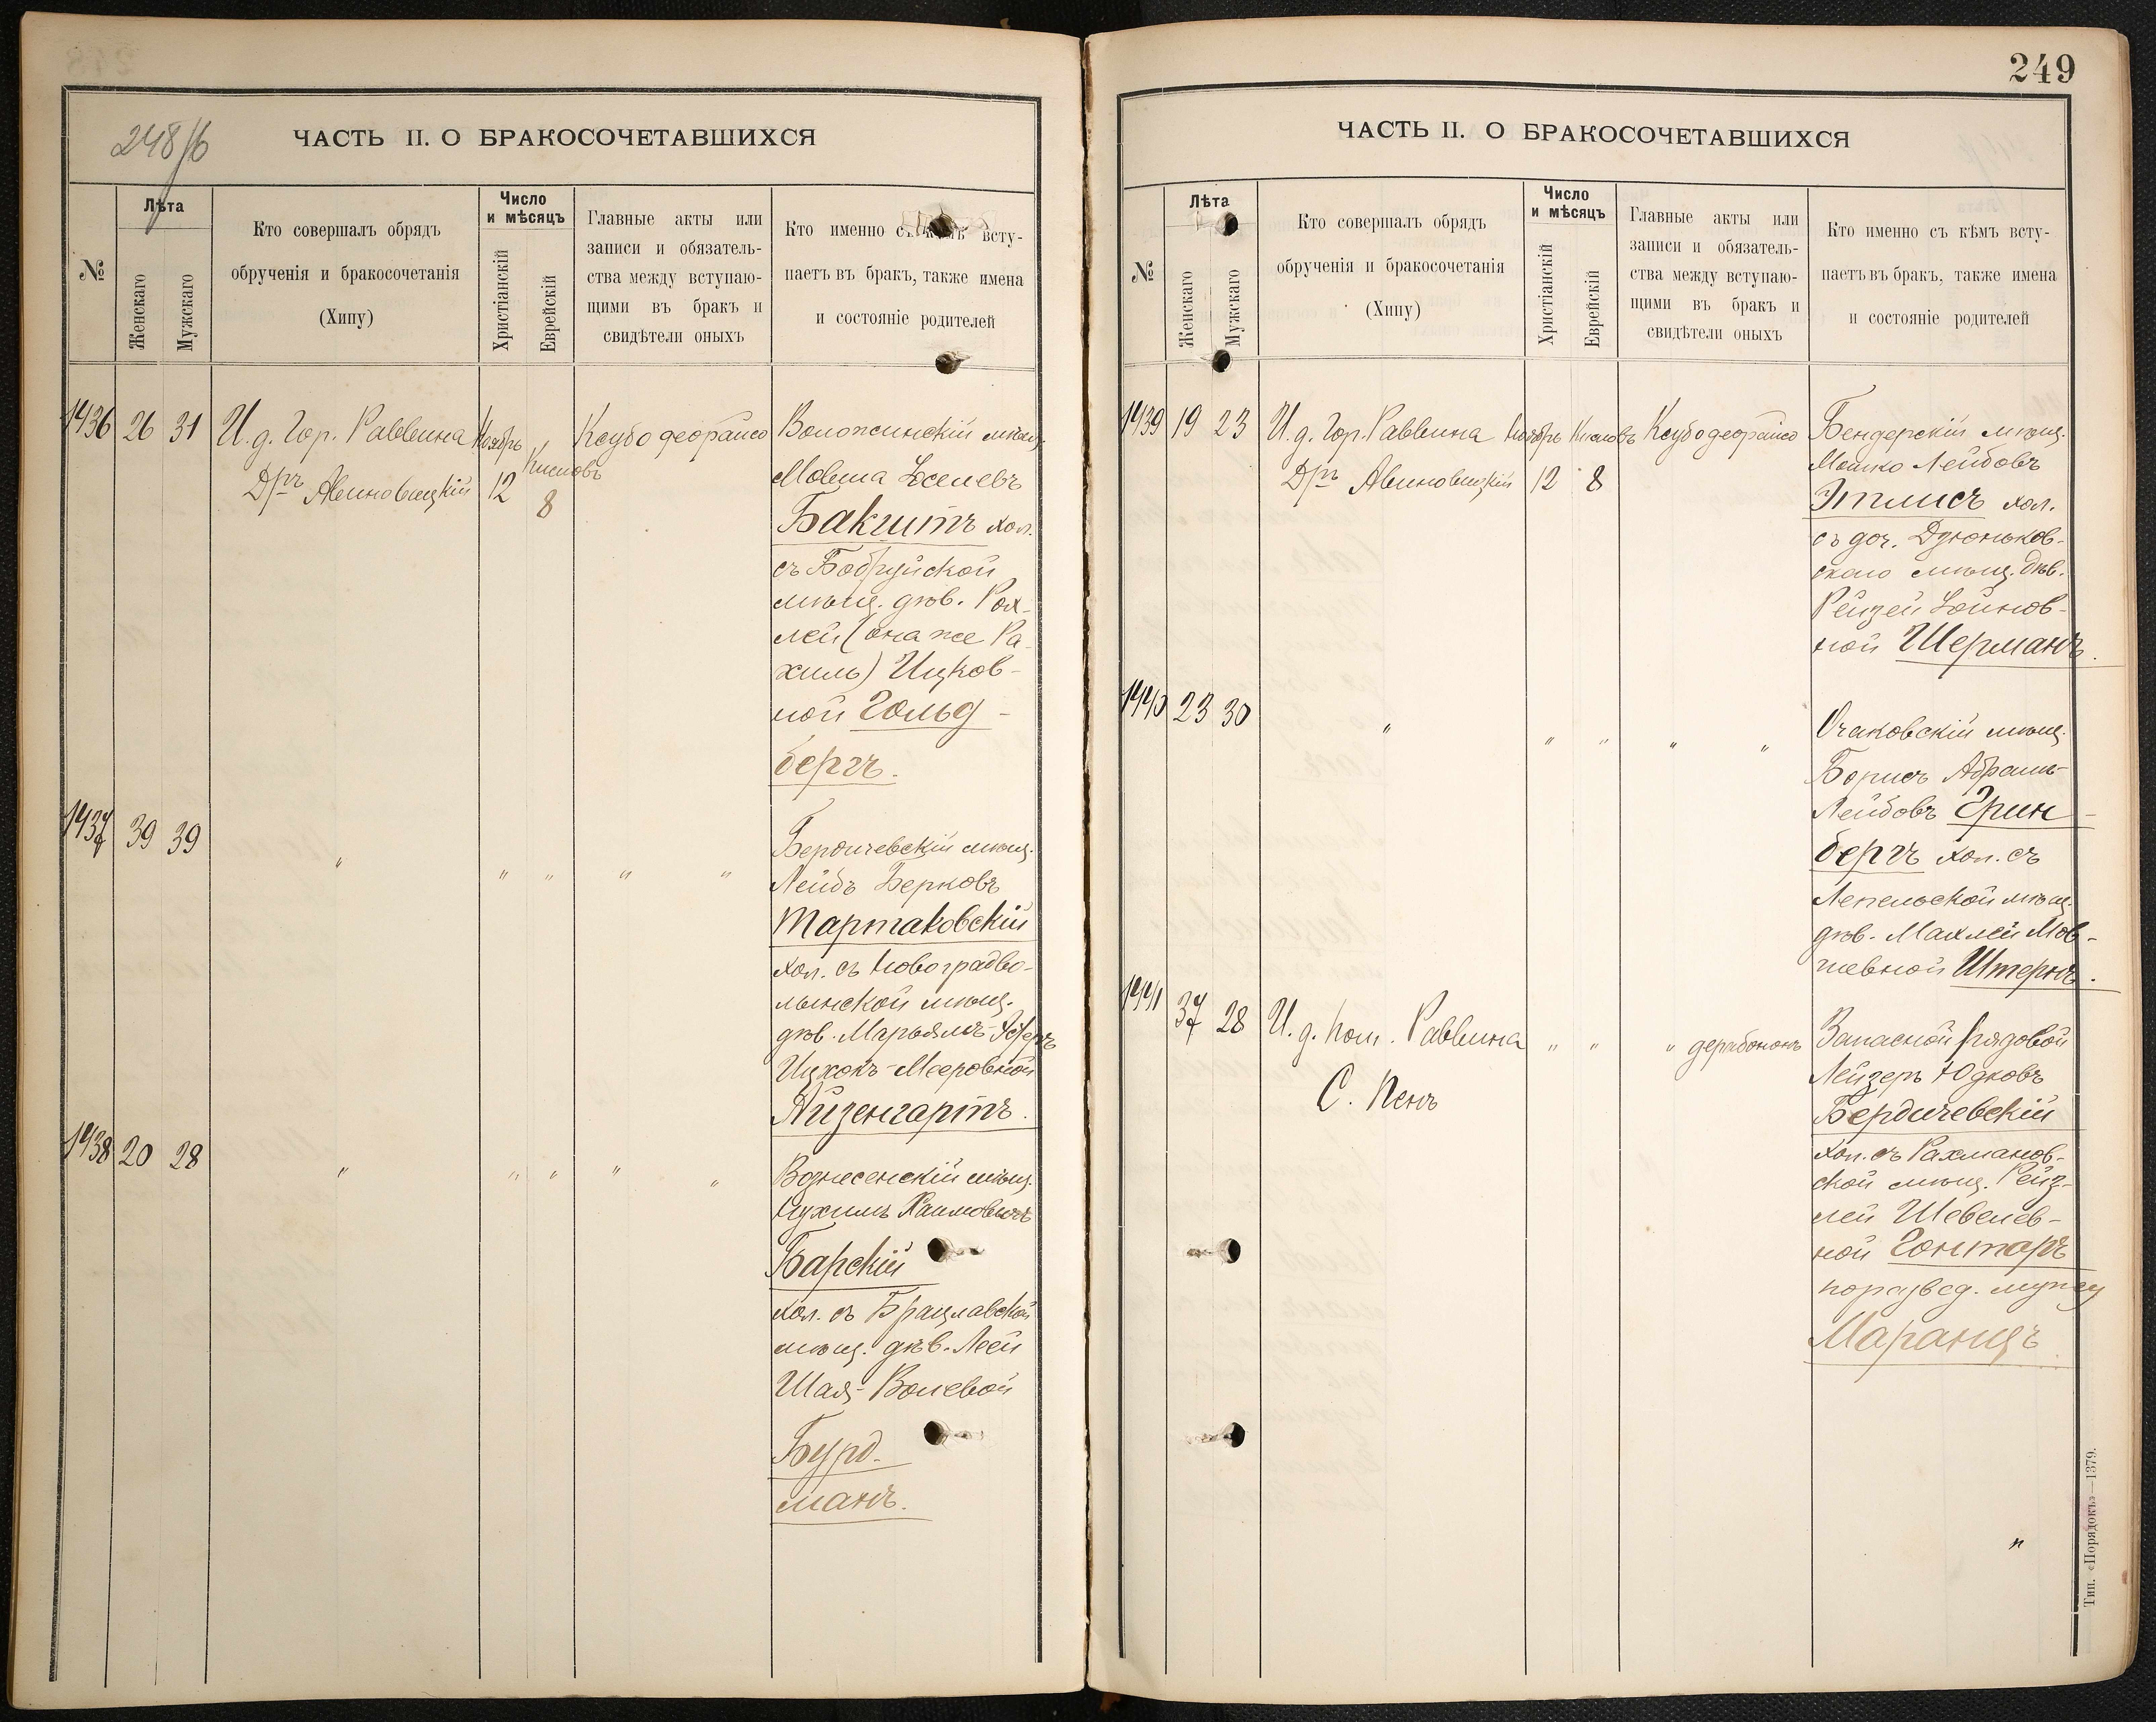 248/б
ЧАСТЬ II. О БРАКОСОЧЕТАВШИХСЯ
№
Лѣта
Женскаго
Мужскаго
Кто совершалъ обрядъ
обрученія и бракосочетанія
(Хипу)
Число
и мѣсяцъ
Христіанскій
Еврейскій
Главные акты или
записи и обязатель-
ства между вступаю-
щими въ бракъ и
свидѣтели оныхъ
Кто именно съ кѣмъ всту-
паетъ въ бракъ, также имена
и состояніе родителей
1436 26 31 И. д. Гор. Раввина Ноябрь Кислевъ Ксубо деорайсо Воложинскій мѣщ.
Дръ Авиновицкій 12 8 Мовша Іоселевъ
Бакштъ хол.
съ Бобруйской
мѣщ. дѣв. Рох-
лей (она же Ра-
хиль) Ицков-
ной Гольд-
бергъ.
1437 39 39 " " " " " Бердичевскій мѣщ.
Лейбъ Берковъ
Тартаковскій
хол. съ Новоградво-
лынской мѣщ.
дѣв. Марьямъ-Эстеръ
Ицхокъ-Мееровной
Айзенгартъ.
1438 20 28 " " " " " Вознесенскій мѣщ.
Нухимъ Хаимовичъ
Барскій
хол. съ Брацлавской
мѣщ. дѣв. Леей
Шая-Волевой
Бурд-
манъ.
249
ЧАСТЬ II. О БРАКОСОЧЕТАВШИХСЯ
№
Лѣта
Женскаго
Мужскаго
Кто совершалъ обрядъ
обрученія и бракосочетанія
(Хипу)
Число
и мѣсяцъ
Христіанскій
Еврейскій
Главные акты или
записи и обязатель-
ства между вступаю-
щими въ бракъ и
свидѣтели оныхъ
Кто именно съ кѣмъ всту-
паетъ въ бракъ, также имена
и состояніе родителей
1439 19 23 И. д. Гор. Раввина Ноябрь Кислевъ Ксубо деорайсо Бендерскій мѣщ.
Дръ Авиновицкій 12 8 Мошко Лейбовъ
Этлисъ хол.
съ доч. Дзюньков-
скаго мѣщ. дѣв.
Рейзей Іойнов-
ной Шерманъ.
1440 23 30 " " " " " Очаковскій мѣщ.
Борисъ Абрамъ-
Лейбовъ Грин-
бергъ хол. съ
Лепельской мѣщ.
дѣв. Махлей Мов-
шевной Штернъ.
1441 37 28 И. д. пом. Раввина " " " дерабононъ Запасной рядовой
С. Пенъ Лейзеръ Юдковъ
Бердичевскій
хол. съ Рахманов-
ской мѣщ. Рейз-
лей Шевелев-
ной Гонтаръ
по развед. мужу
Маранцъ
"
Тип. «Порядокъ»—1379.